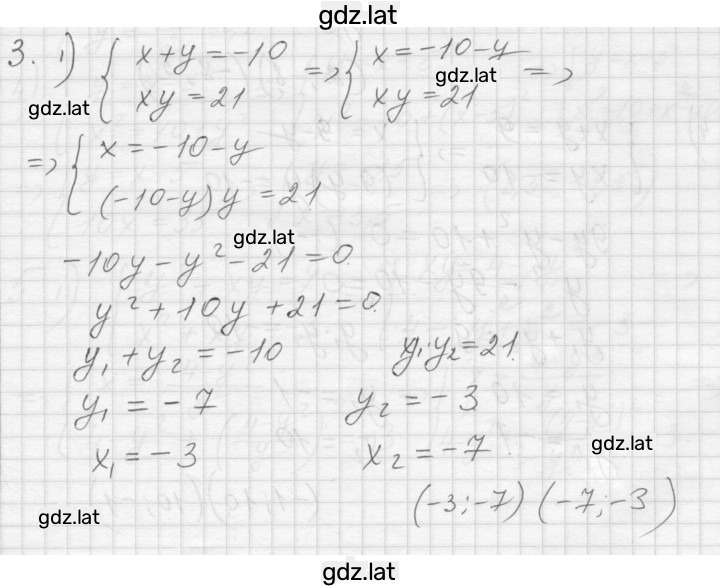 gdz.lat
3. 1) { x+y=-10 => { x=-10-y
gdz.lat
xy=21 xy=21 =>
gdz.lat
=> { x=-10-y
(-10-y)y=21
gdz.lat
-10y-y²-21=0.
y²+10y+21=0.
y₁+y₂=-10 y₁·y₂=21.
y₁=-7 y₂=-3
x₁=-3 x₂=-7.
gdz.lat
(-3;-7) (-7;-3)
gdz.lat
gdz.lat